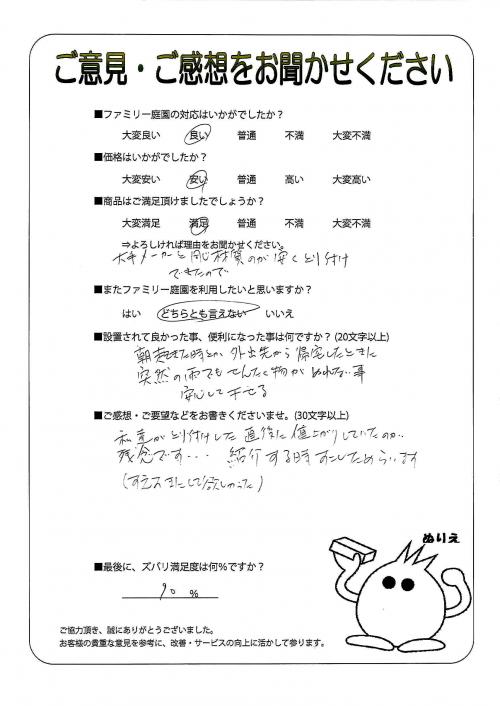 ご意見・ご感想をお聞かせください
■ファミリー庭園の対応はいかがでしたか？
大変良い 良い 普通 不満 大変不満
■価格はいかがでしたか？
大変安い 安い 普通 高い 大変高い
■商品はご満足頂けましたでしょうか？
大変満足 満足 普通 不満 大変不満
⇒よろしければ理由をお聞かせください。
大手メーカーと同じ材質のが安くとり付け
できたので
■またファミリー庭園を利用したいと思いますか？
はい どちらとも言えない いいえ
■設置されて良かった事、便利になった事は何ですか？(20文字以上)
朝起きた時とか、外出先から帰宅したときに
突然の雨でもせんたく物がぬれない事
安心して干せる
■ご感想・ご要望などをお書きくださいませ。(30文字以上)
私達がとり付けした直後に値上がりしていたのが、
残念です・・・ 紹介する時すこしためらいます
ぬりえ
■最後に、ズバリ満足度は何％ですか？
90 %
ご協力頂き、誠にありがとうございました。
お客様の貴重な意見を参考に、改善・サービスの向上に活かして参ります。